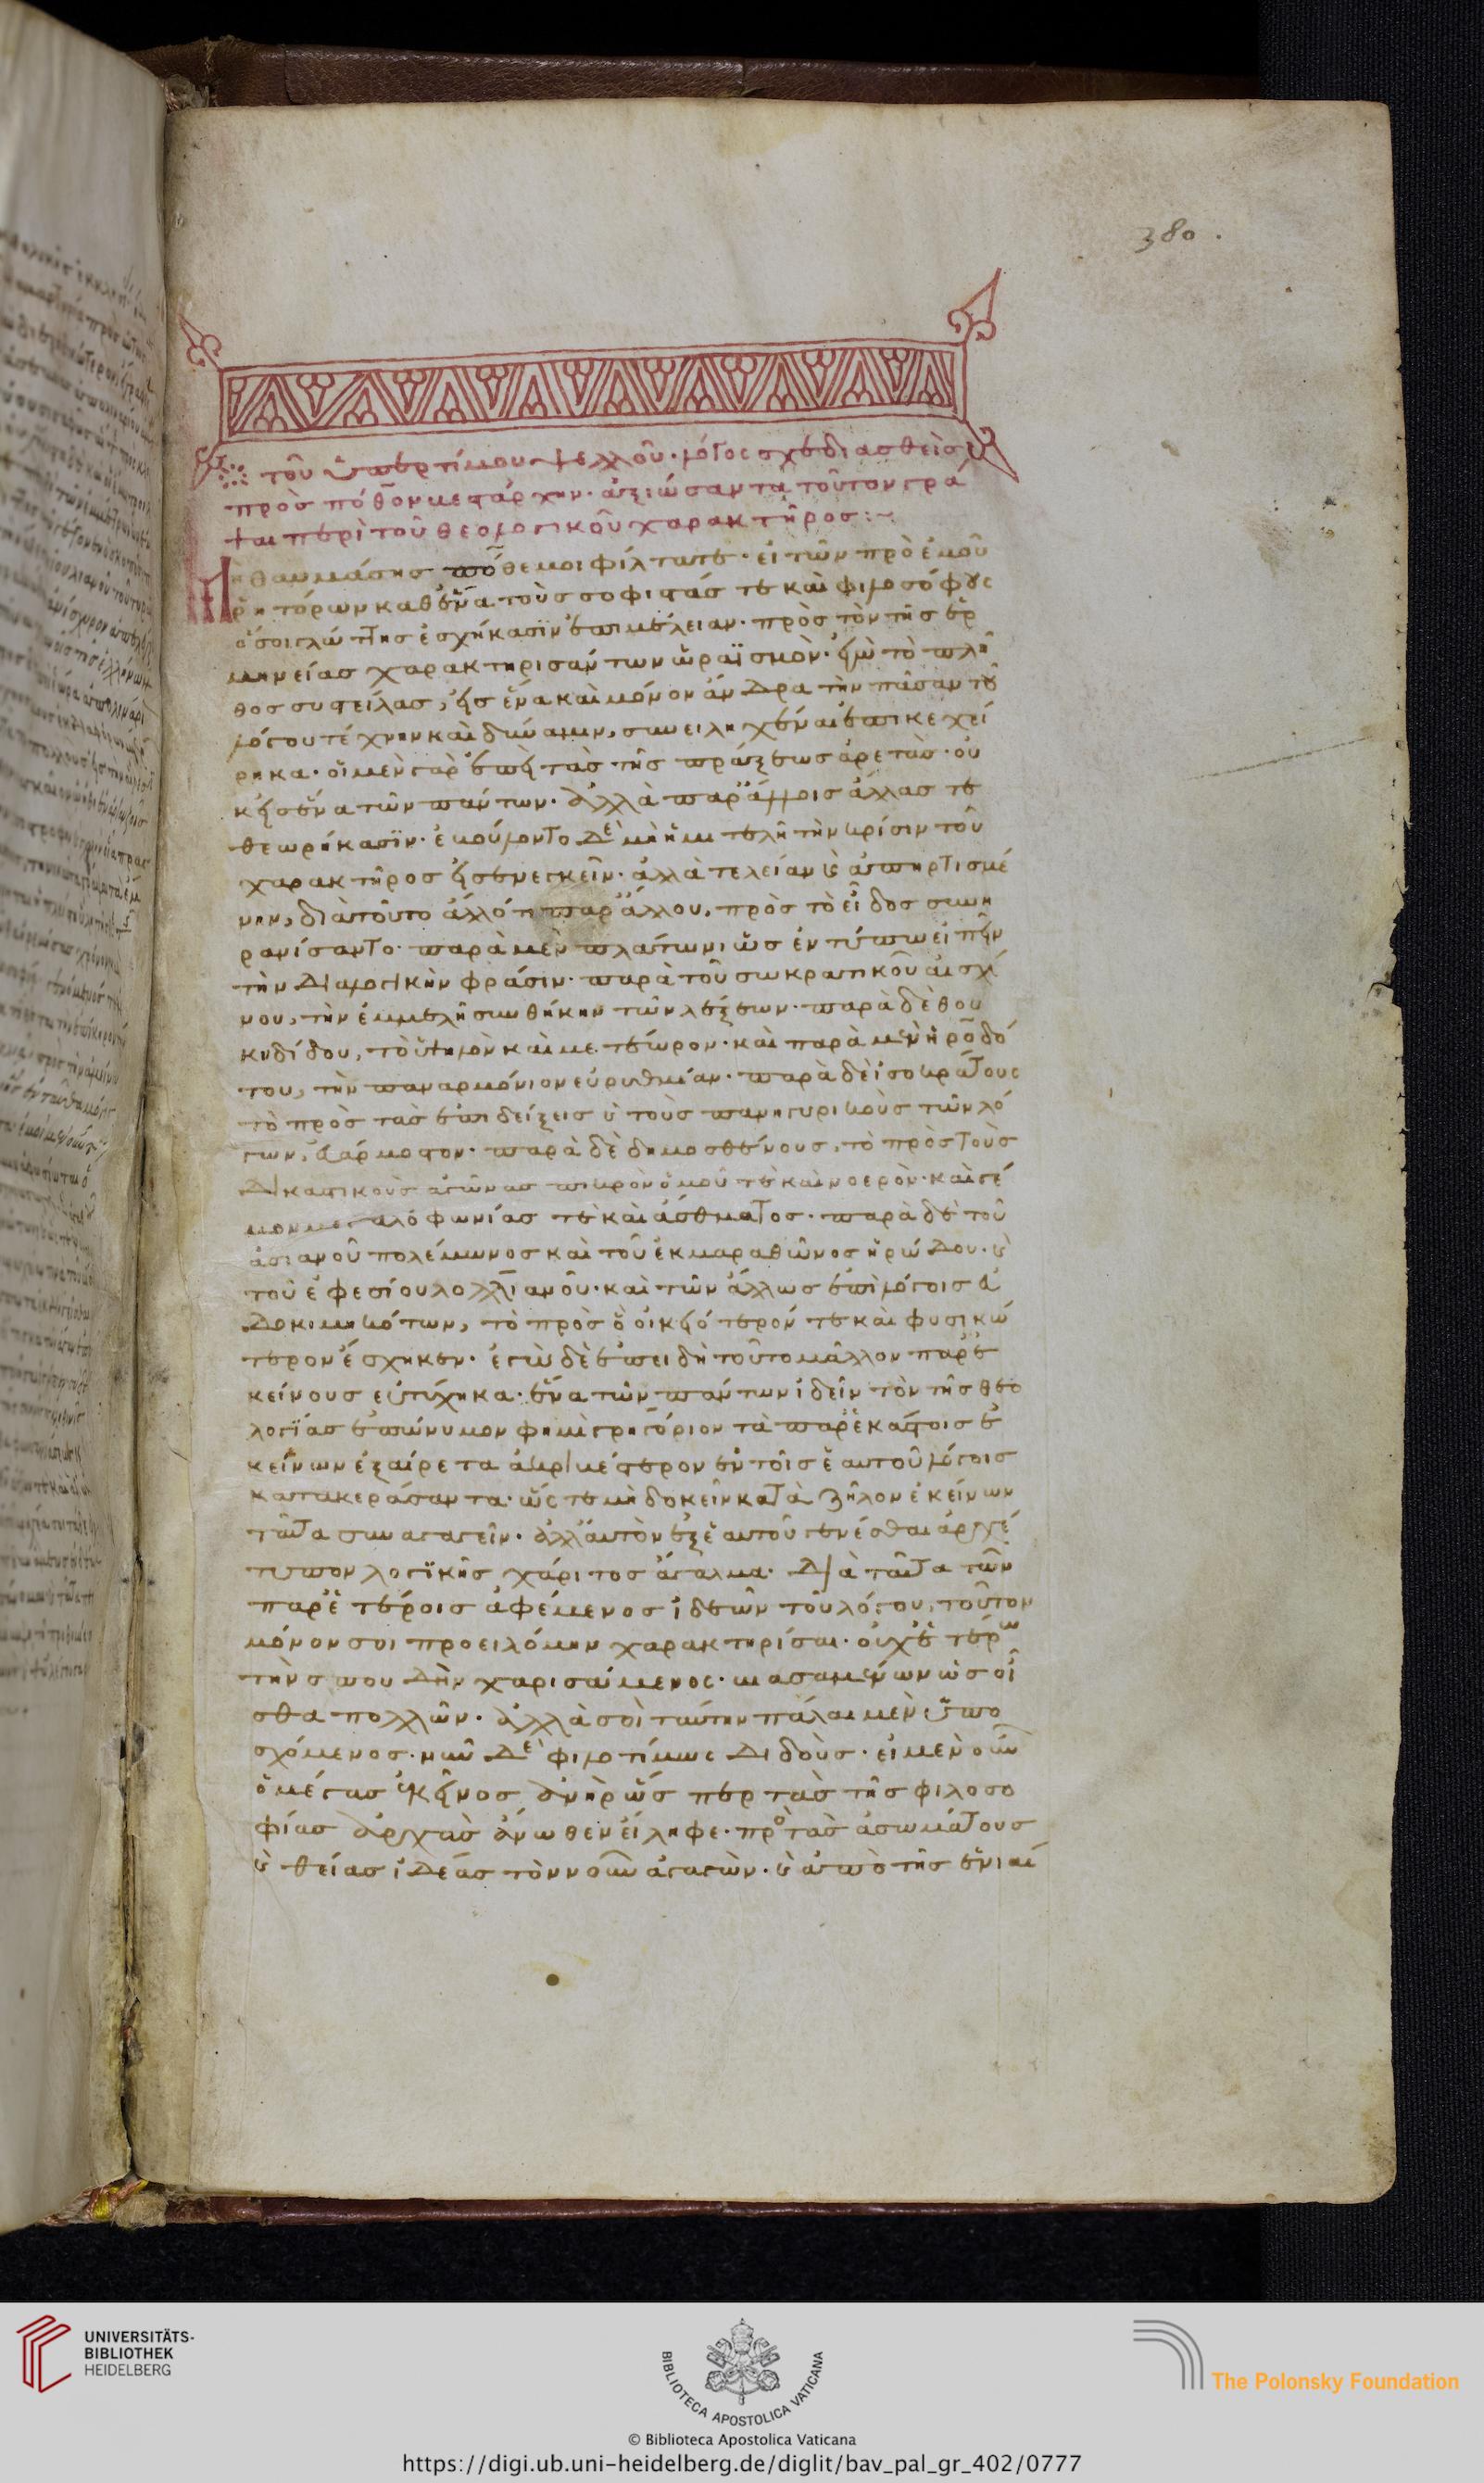 380.
τοῦ ὑπερτίμου ψελλοῦ· λόγος σχεδιασθεὶς
πρὸς πόθον μεστάρχην· ἀξιώσαντα τοῦτον γρά
ψαι περὶ τοῦ θεολογικοῦ χαρακτῆρος:~
Μὴ θαυμάσης πόθε μοι φίλτατε· εἰ τῶν πρὸ ἐμοῦ
ῥητόρων καθένα τοὺς σοφιστάς τε καὶ φιλοσόφους
ὅσοι γλώττης ἐσχήκασϊν ἐπιμέλειαν· πρὸς τὸν τῆς ἑρ
μηνείας χαρακτηρισάντων ὡραϊσμὸν· ἐγὼ τὸ πλῆ
θος συστείλας, εἰς ἕνα καὶ μόνον ἄνδρα τὴν πᾶσαν τοῦ
λόγου τέχνην καὶ δύναμιν, συνειληχέναι ἐπικεχεί
ρηκα· οἱ μὲν γὰρ ἐπεὶ τὰς τῆς πράξεως ἀρετὰς· οὐ
κ εἰς ἕνα τῶν πάντων· ἀλλὰ παρ' ἄλλοις ἄλλας τε
θεωρήκασϊν· ἐβούλοντο δὲ μὴ ἡμιτελῆ τὴν κρίσιν τοῦ
χαρακτῆρος εἰσενεγκεῖν· ἀλλὰ τελείαν καὶ ἀπηρτισμέ
νην, διὰ τοῦτο ἄλλό τι παρ' ἄλλου, πρὸς τὸ εἶδος συνη
ρανίσαντο· παρὰ μὲν πλάτωνι ὡς ἐν τύπω εἰπεῖν
τὴν διαλογικὴν φράσιν· παρὰ τοῦ σωκρατικοῦ αἰσχί
νου, τὴν ἐμμελῆ συνθήκην τῶν λέξεων· παρὰ δὲ θου
κυδίδου, τὸ ὑψηλὸν καὶ μετέωρον· καὶ παρὰ μὲν ἡροδό
του, τὴν παναρμόνιον εὐρυθμίαν· παρὰ δὲ ἰσοκράτους
τὸ πρὸς τὰς ἐπιδείξεις καὶ τοὺς πανηγυρικοὺς τῶν λό
γων, εὐάρμοστον· παρὰ δὲ δημοσθένους, τὸ πρὸς τοὺς
δικανικοὺς ἀγῶνας πικρὸν ὁμοῦ τε καὶ νοερὸν· καὶ γέ
μον μεγαλοφωνίας τε καὶ ἄσθματος· παρὰ δὲ τοῦ
ἀσιανοῦ πολέμωνος καὶ τοῦ ἐκ μαραθῶνος ἡρώδου· καὶ
τοῦ ἐφεσίου λολλϊανοῦ· καὶ τῶν ἄλλως ἐπὶ λόγοις εὐ
δοκιμηκότων, τὸ πρὸς ὃ οἰκειότερόν τε καὶ φυσικώ
τερον ἔσχηκεν· ἐγὼ δὲ ἐπειδὴ τοῦτο μᾶλλον παρ' ἐ
κείνους εὐτύχηκα· ἕνα τῶν πάντων ἰδεῖν τὸν τῆς θεο
λογϊας ἐπώνυμον φημὶ γρηγόριον τὰ παρ' ἑκάστοις ἐ
κείνων ἐξαίρετα ἀκριβέστερον ἐν τοῖς ἑαυτοῦ λόγοις
κατακεράσαντα· ὥς τε μὴ δοκεῖν κατὰ ζῆλον ἐκείνων
ταῦτα συναγαγεῖν· ἀλλ' αὐτὸν ἐξ ἑαυτοῦ γενέσθαι ἀρχέ
τυπον λογϊκῆς χάριτος ἄγαλμα· διὰ ταῦτα τῶν
παρ' ἑτέροις ἀφέμενος ἰδεῶν τοῦ λόγου, τοῦτον
μόνον σοι προειλόμην χαρακτηρίσαι· οὐχ ἑτέρω
τὴν σπουδὴν χαρισάμενος· βιασαμένων ὡς οἶ
σθα πολλῶν· ἀλλὰ σοὶ ταύτην πάλαι μὲν ὑπο
σχόμενος· νῦν δὲ φιλοτίμως διδοὺς· εἰ μὲν οὖν
ὁ μέγας ἐκεῖνος ἀνὴρ ὥσπερ τὰς τῆς φιλοσο
φίας ἀρχὰς ἄνωθεν εἴληφε· πρὸ τὰς ἀσωμάτους
καὶ θείας ἰδέας τὸν νοῦν ἀγαγὼν· καὶ ἀπὸ τῆς ἑνιαί
UNIVERSITÄTS-
BIBLIOTHEK
HEIDELBERG
BIBLIOTECA APOSTOLICA VATICANA
The Polonsky Foundation
© Biblioteca Apostolica Vaticana
https://digi.ub.uni-heidelberg.de/diglit/bav_pal_gr_402/0777